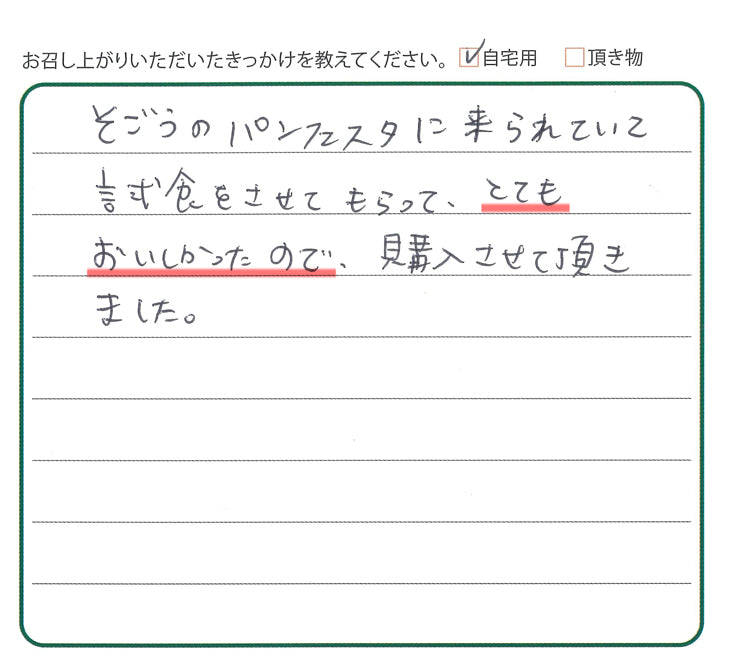 お召し上がりいただいたきっかけを教えてください。 自宅用 頂き物
そごうのパンフェスタに来られていて
試食をさせてもらって、とても
おいしかったので、購入させて頂き
ました。